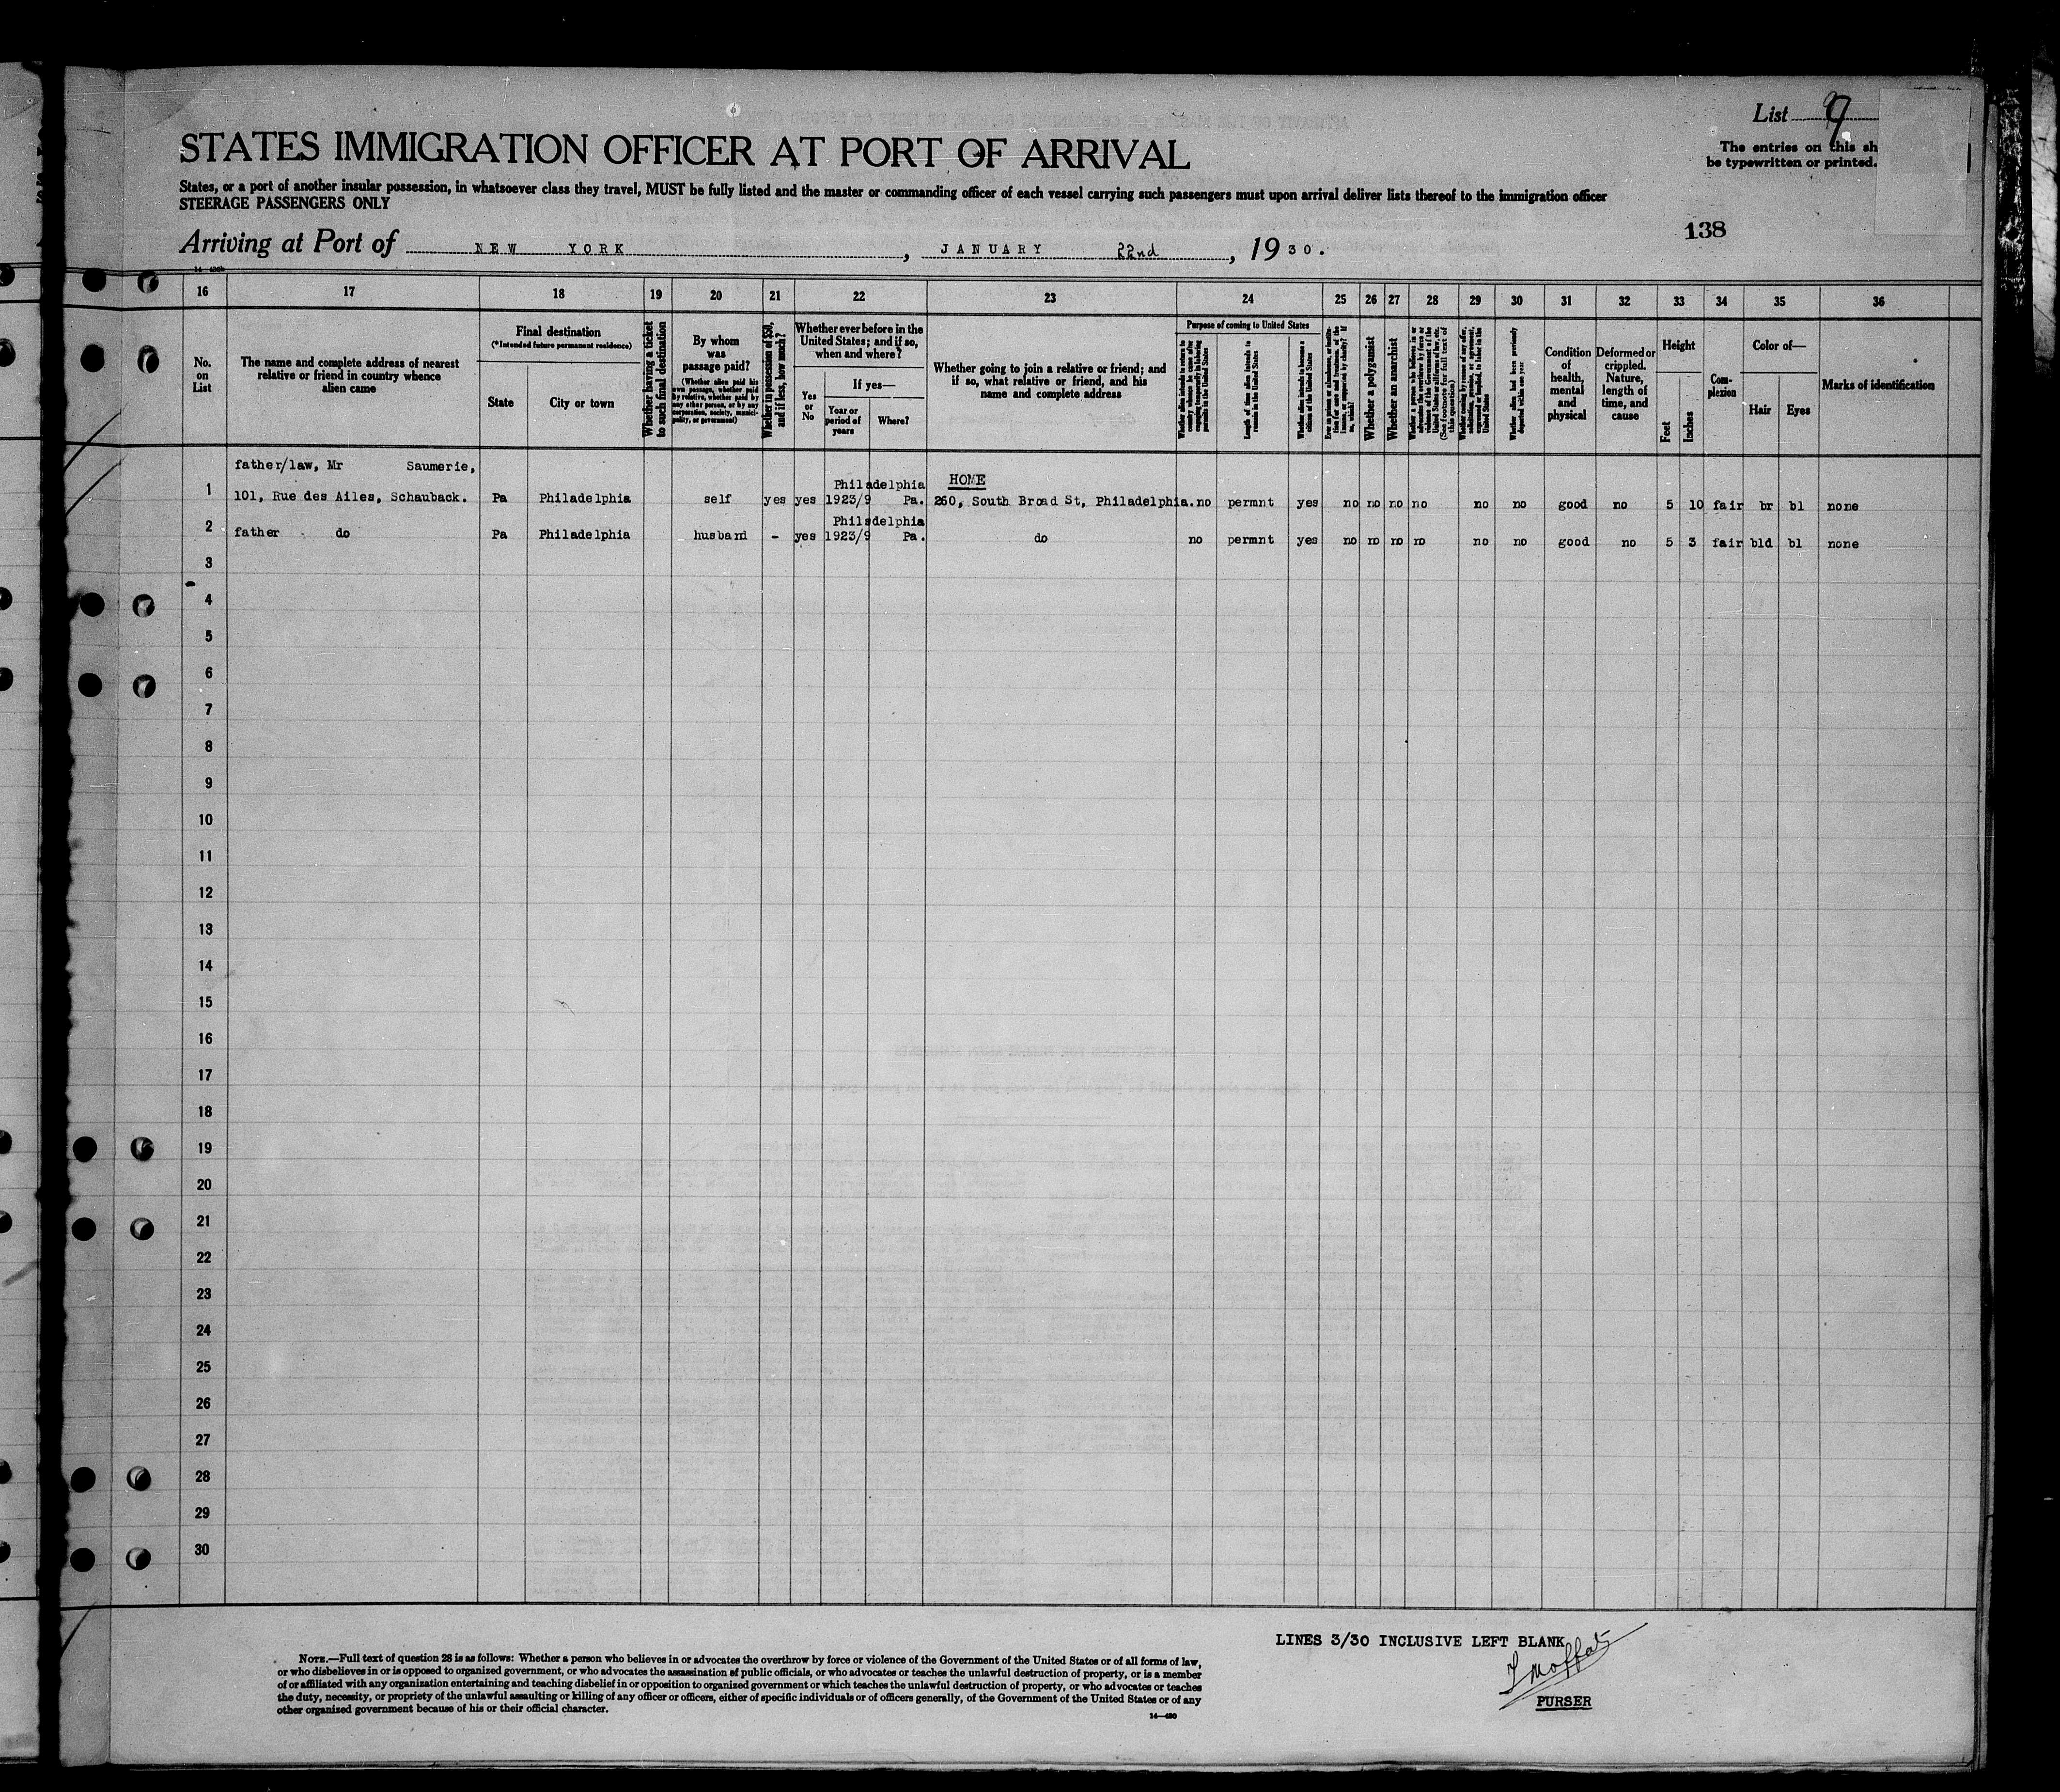 List 9
The entries on this sh
be typewritten or printed.
STATES IMMIGRATION OFFICER AT PORT OF ARRIVAL
States, or a port of another insular possession, in whatsoever class they travel, MUST be fully listed and the master or commanding officer of each vessel carrying such passengers must upon arrival deliver lists thereof to the immigration officer
STEERAGE PASSENGERS ONLY
138
Arriving at Port of NEW YORK, JANUARY 22nd, 1930.
16 17 18 19 20 21 22 23 24 25 26 27 28 29 30 31 32 33 34 35 36
No. on List
The name and complete address of nearest relative or friend in country whence alien came
Final destination
(*Intended future permanent residence)
State
City or town
Whether having a ticket to such final destination
By whom was passage paid?
(Whether alien paid his own passage, whether paid by relative, whether paid by any other person, or by any corporation, society, municipality, or government)
Whether in possession of $50, and if less, how much?
Whether ever before in the United States; and if so, when and where?
Yes or No
If yes—
Year or period of years
Where?
Whether going to join a relative or friend; and if so, what relative or friend, and his name and complete address
Purpose of coming to United States
Length of time alien intends to remain in the United States
Whether alien intends to become a citizen of the United States
Whether a polygamist
Whether an anarchist
Whether alien had been previously deported within one year
Condition of health, mental and physical
Deformed or crippled. Nature, length of time, and cause
Height
Feet
Inches
Complexion
Color of—
Hair
Eyes
Marks of identification
father/law, Mr Saumerie, Philadelphia HOME
1 101, Rue des Ailes, Schauback. Pa Philadelphia self yes yes 1923/9 Pa. 260, South Broad St, Philadelphia. no permnt yes no no no no no no good no 5 10 fair br bl none
Philadelphia
2 father do Pa Philadelphia husband - yes 1923/9 Pa. do no permnt yes no no no no no no good no 5 3 fair bld bl none
3
4
5
6
7
8
9
10
11
12
13
14
15
16
17
18
19
20
21
22
23
24
25
26
27
28
29
30
LINES 3/30 INCLUSIVE LEFT BLANK
Moffat
PURSER
NOTE.—Full text of question 28 is as follows: Whether a person who believes in or advocates the overthrow by force or violence of the Government of the United States or of all forms of law,
or who disbelieves in or is opposed to organized government, or who advocates the assassination of public officials, or who advocates or teaches the unlawful destruction of property, or is a member
of or affiliated with any organization entertaining and teaching disbelief in or opposition to organized government or which teaches the unlawful destruction of property, or who advocates or teaches
the duty, necessity, or propriety of the unlawful assaulting or killing of any officer or officers, either of specific individuals or of officers generally, of the Government of the United States or of any
other organized government because of his or their official character.
14—480